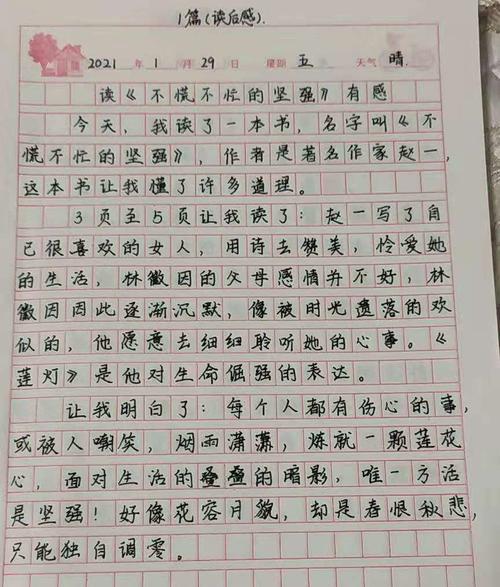 1篇(读后感).
2021年1月29日 星期五 天气晴.
读《不慌不忙的坚强》有感
今天，我读了一本书，名字叫《不
慌不忙的坚强》，作者是著名作家赵一，
这本书让我懂了许多道理。
3页至5页让我读了：赵一写了自
己很喜欢的女人，用诗去赞美，怜爱她
的生活，林徽因的父母感情并不好，林
徽因因此逐渐沉默，像被时光遗落的欢
似的，他愿意去细细聆听她的心事。《
莲灯》是他对生命倔强的表达。
让我明白了：每个人都有伤心的事，
或被人嘲笑，烟雨潇潇，炼就一颗莲花
心，面对生活的叠叠的暗影，唯一方活
是坚强！好像花容月貌，却是春恨秋悲，
只能独自调零。